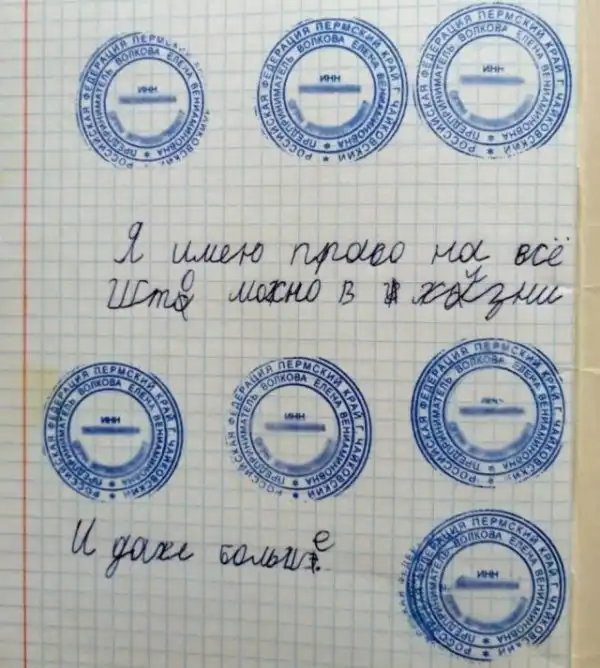 РОССИЙСКАЯ ФЕДЕРАЦИЯ ПЕРМСКИЙ ЧАЙКОВСКИЙ
ПРЕДПРИНИМАТЕЛЬ ВОЛКОВА ЕЛЕНА ВЕНИАМИНОВНА
ИНН
РОССИЙСКАЯ ФЕДЕРАЦИЯ ПЕРМСКИЙ КРАЙ Г. ЧАЙКОВСКИЙ
ПРЕДПРИНИМАТЕЛЬ ВОЛКОВА ЕЛЕНА ВЕНИАМИНОВНА
ИНН
РОССИЙСКАЯ ФЕДЕРАЦИЯ ПЕРМСКИЙ КРАЙ Г. ЧАЙКОВСКИЙ
ПРЕДПРИНИМАТЕЛЬ ВОЛКОВА ЕЛЕНА ВЕНИАМИНОВНА
ИНН
Я имею право на всё
Што можно в жизни
РОССИЙСКАЯ ФЕДЕРАЦИЯ ПЕРМСКИЙ КРАЙ Г. ЧАЙКОВСКИЙ
ПРЕДПРИНИМАТЕЛЬ ВОЛКОВА ЕЛЕНА ВЕНИАМИНОВНА
ИНН
РОССИЙСКАЯ ФЕДЕРАЦИЯ ПЕРМСКИЙ КРАЙ Г. ЧАЙКОВСКИЙ
ПРЕДПРИНИМАТЕЛЬ ВОЛКОВА ЕЛЕНА ВЕНИАМИНОВНА
ИНН
РОССИЙСКАЯ ФЕДЕРАЦИЯ ПЕРМСКИЙ КРАЙ Г. ЧАЙКОВСКИЙ
ПРЕДПРИНИМАТЕЛЬ ВОЛКОВА ЕЛЕНА ВЕНИАМИНОВНА
И даже больше
РОССИЙСКАЯ ФЕДЕРАЦИЯ ПЕРМСКИЙ КРАЙ Г. ЧАЙКОВСКИЙ
ПРЕДПРИНИМАТЕЛЬ ВОЛКОВА ЕЛЕНА ВЕНИАМИНОВНА
ИНН